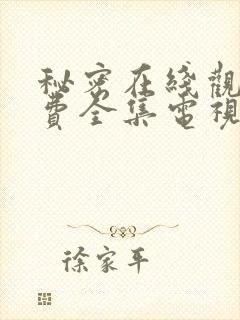 秘密在綫觀
費全集電視
徐家平